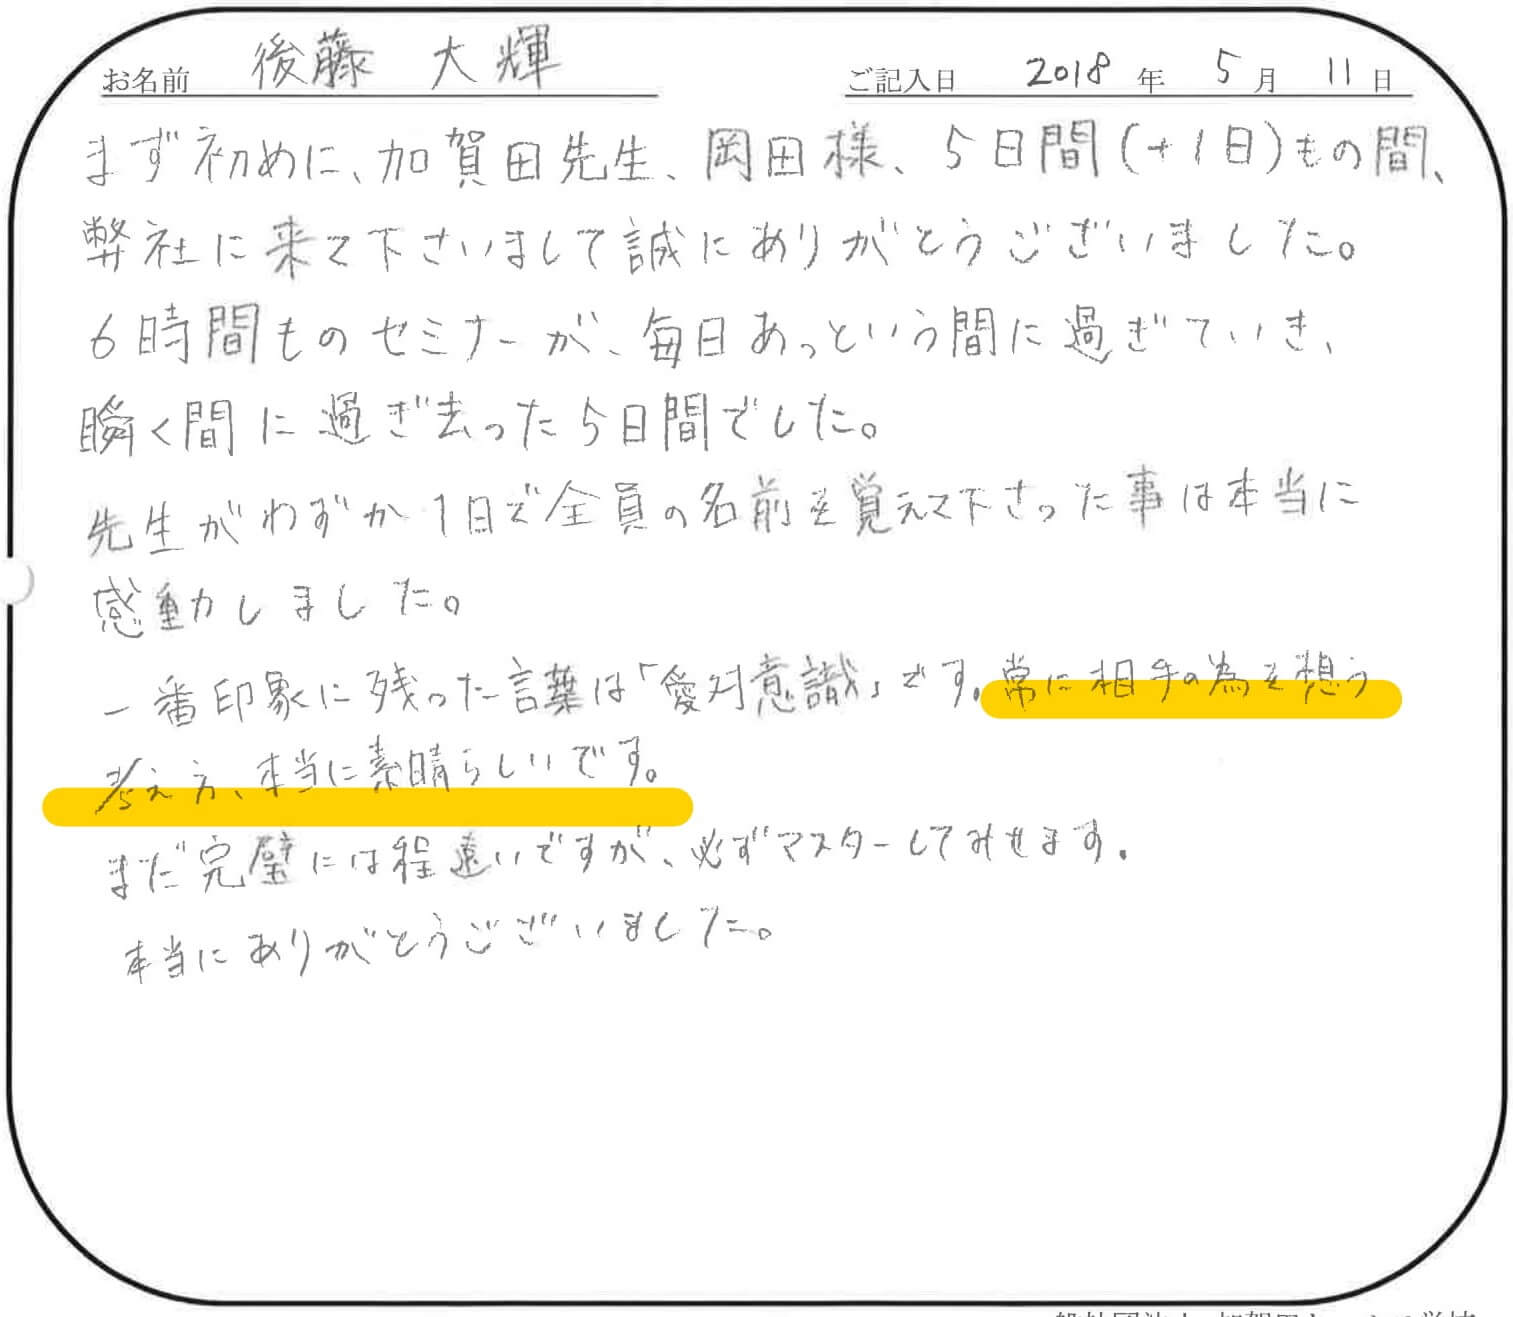 お名前 後藤 大輝 ご記入日 2018 年 5 月 11 日
まず初めに、加賀田先生、岡田様、5日間(+1日)もの間、
弊社に来て下さいまして誠にありがとうございました。
6時間ものセミナーが、毎日あっという間に過ぎていき、
瞬く間に過ぎ去った5日間でした。
先生がわずか1日で全員の名前を覚えて下さった事は本当に
感動しました。
一番印象に残った言葉は「愛対意識」です。常に相手の為を想う
考え方、本当に素晴らしいです。
まだ完璧には程遠いですが、必ずマスターしてみせます。
本当にありがとうございました。